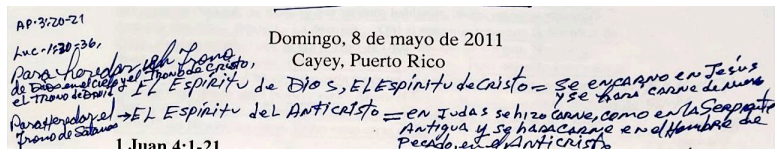 AP. 3:20-21
Luc. 1:30-36,
Domingo, 8 de mayo de 2011
Cayey, Puerto Rico
Para heredar el Trono
de Dios en el cielo y el Trono de Cristo,
el Trono de David → EL Espíritu de Dios, EL Espíritu de Cristo = Se encarnó en Jesús
y se hará carne de nuevo
Para Heredar el → EL Espíritu del Anticristo = en Judas se hizo carne, como en la Serpiente
Trono de Satanás
Antigua y se hará carne en el Hombre de
1 Juan 4:1-21
Pecado, en el Anticristo